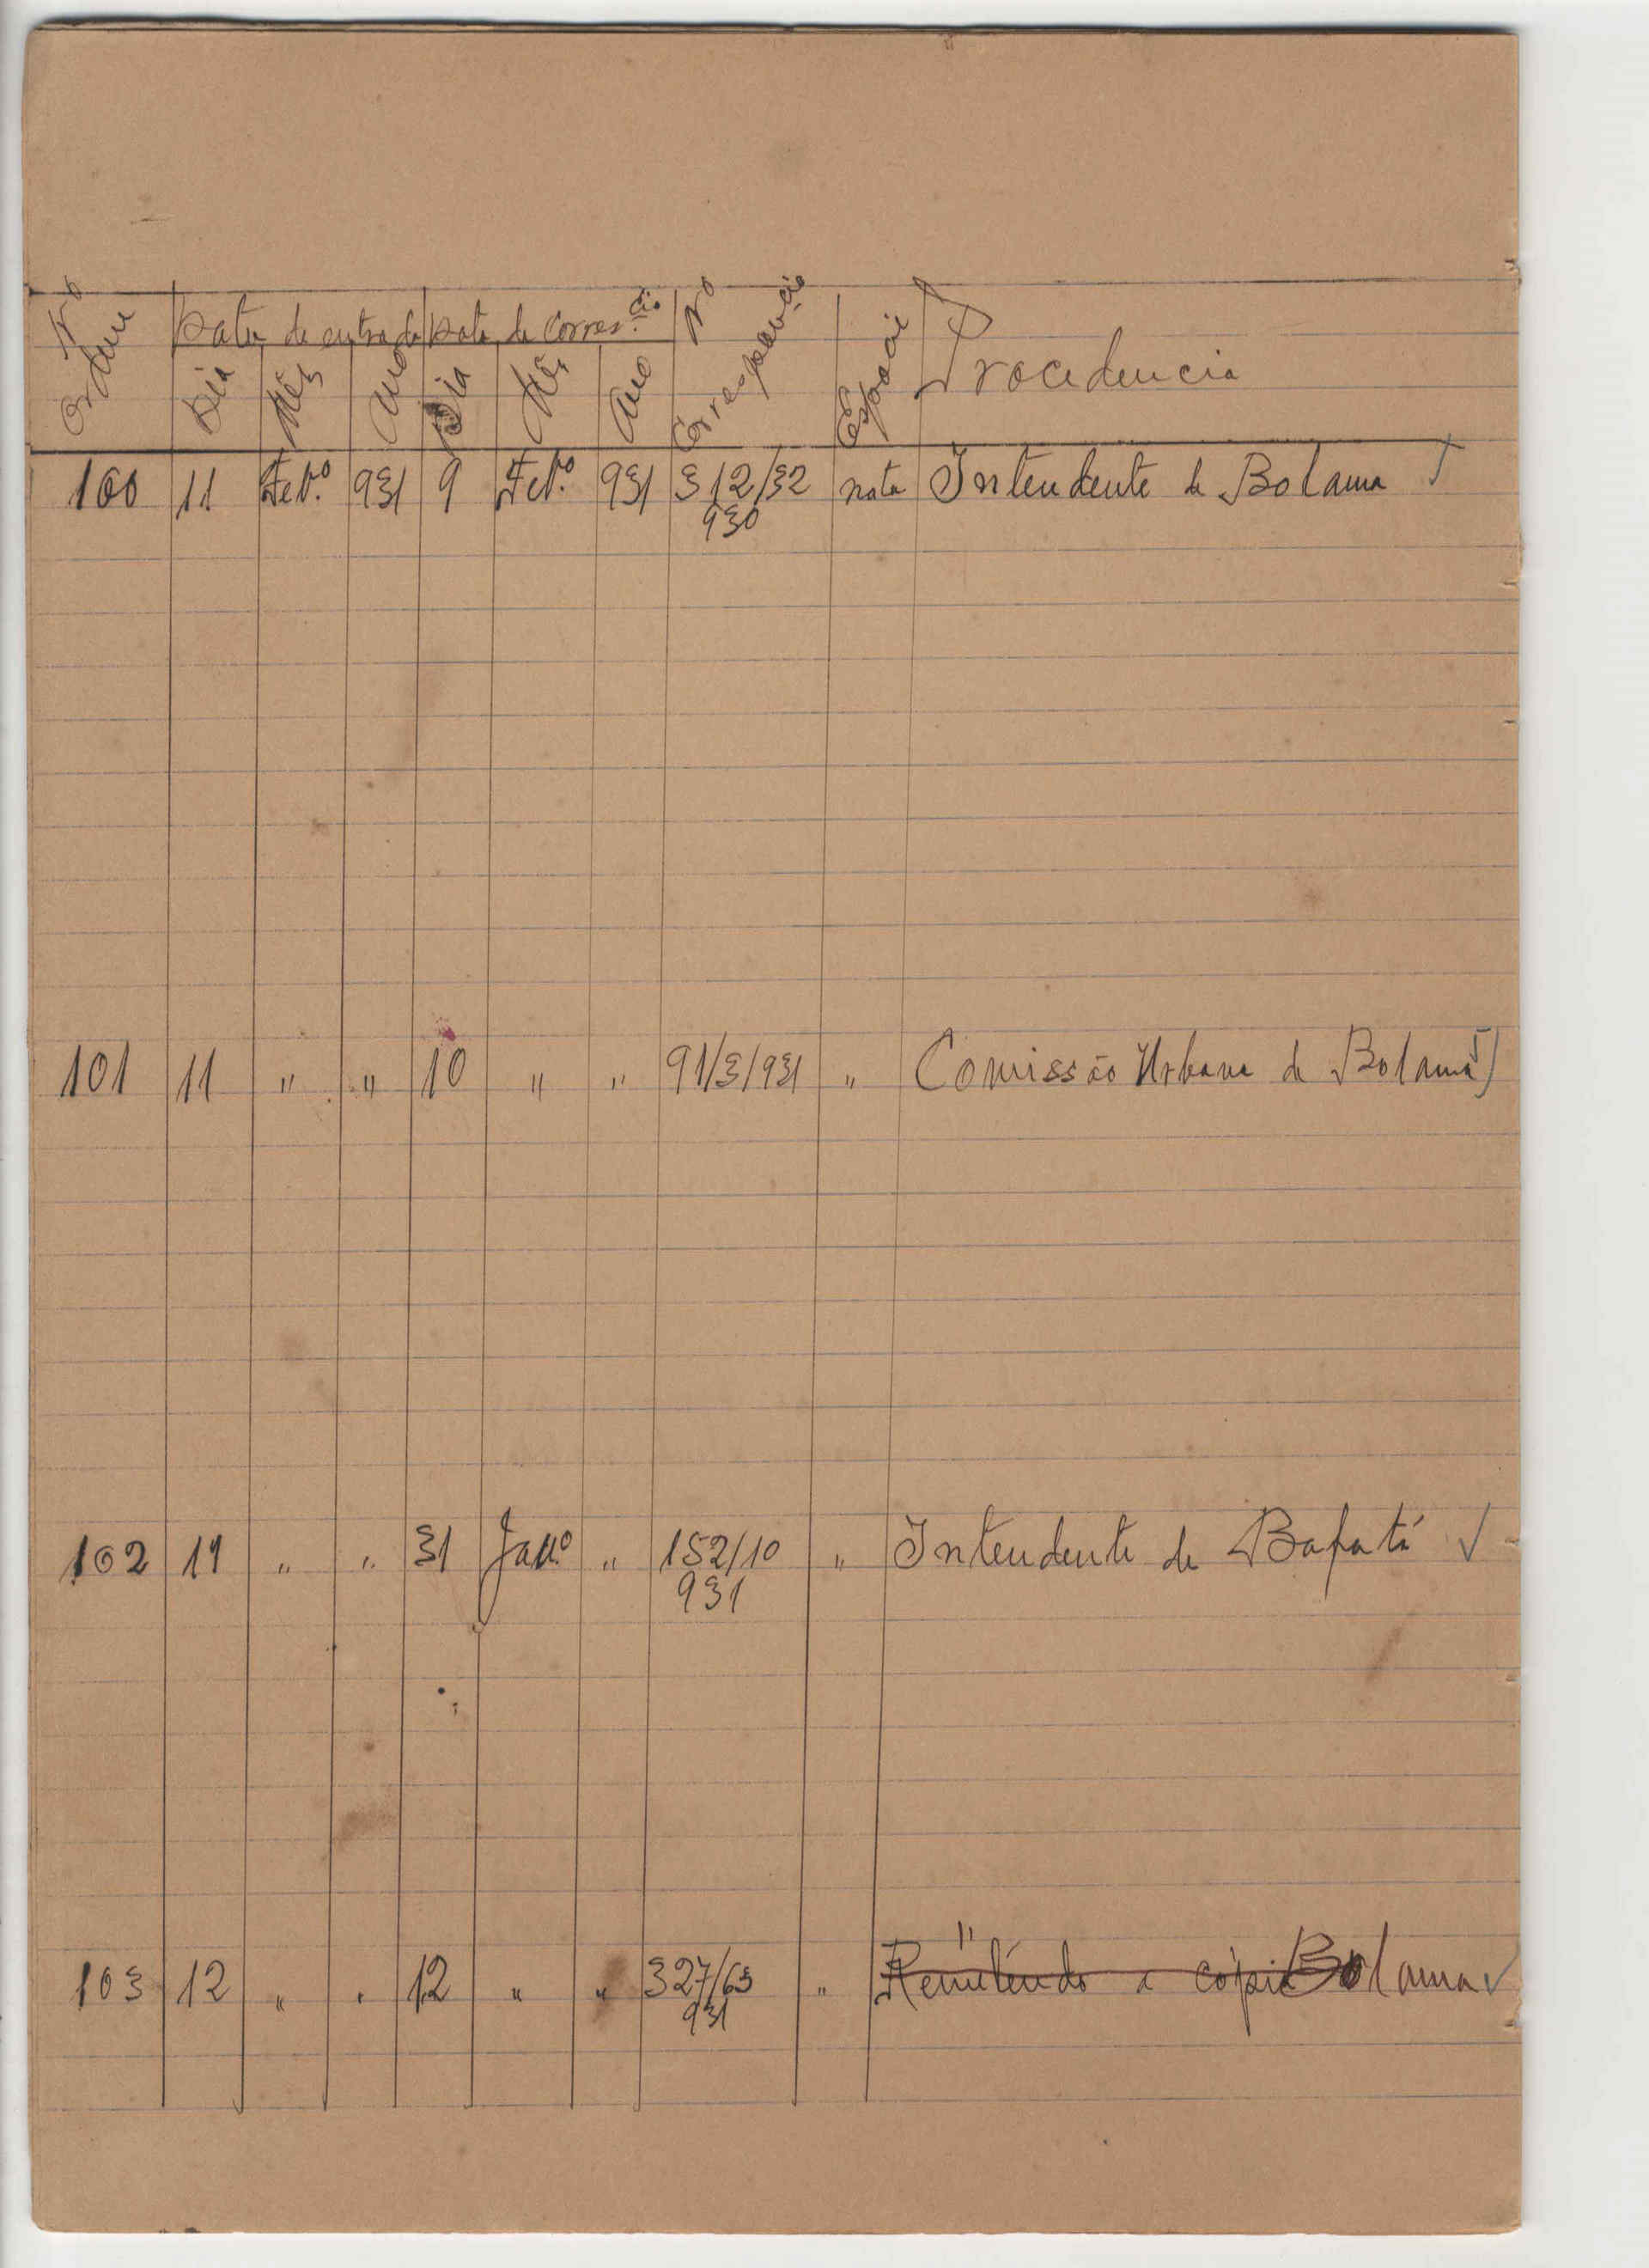 Nº Ordem Data de entrada Data de corres.cia Nº Correspondencia Especie Procedencia
Dia Mês Ano Dia Mês Ano
100 11 Fevº. 931 9 Fevº. 931 312/32 nota Intendente de Bolama √
930
101 11 " " 10 " " 91/3/931 " Comissão Urbana de Bolama √
102 11 " " 31 Janº. " 152/10 " Intendente de Bafatá √
931
"
103 12 " " 12 " " 327/63 " Remetendo a cópia Bolama √
931